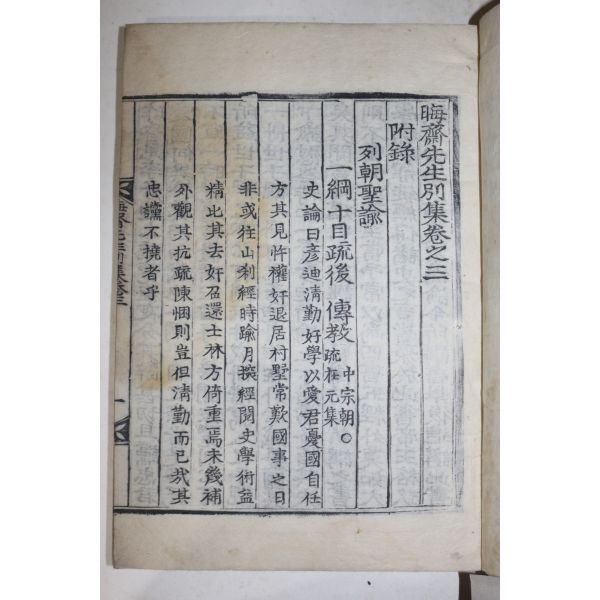 晦齋先生別集卷之三
附錄
列朝聖諭
一綱十目疏後 傳教 中宗朝○疏在元集
史論曰彦迪淸勤好學以愛君憂國自任
方其見忤權奸退居村墅常歎國事之日
非或往山刹經時踰月攷經閱史學術益
精比其去奸召還士林方倚重焉未幾補
外觀其抗疏陳悃則豈但淸勤而已哉其
忠讜不撓者乎
晦齋先生別集卷三
一